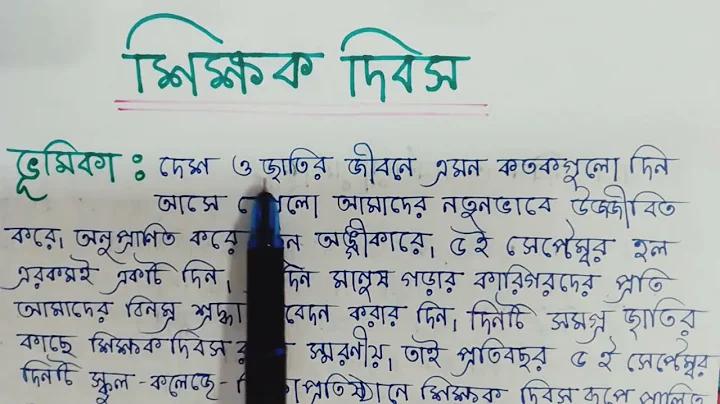 শিক্ষক দিবস
ভূমিকা : দেশ ও জাতির জীবনে এমন কতকগুলো দিন
আসে আমাদের নতুনভাবে উজ্জীবিত
করে, অনুপ্রাণিত করে অঙ্গীকারে, ৫ই সেপ্টেম্বর হল
এরকমই একটি দিন। মানুষ গড়ার কারিগরদের প্রতি
আমাদের বিনম্র শ্রদ্ধা করার দিন, দিনটি সমগ্র জাতির
কাছে শিক্ষক দিবস স্মরণীয়, তাই প্রতিবছর ৫ ই সেপ্টেম্বর
দিনটি স্কুল - কলেজে - শিক্ষক দিবস রূপে পালিত